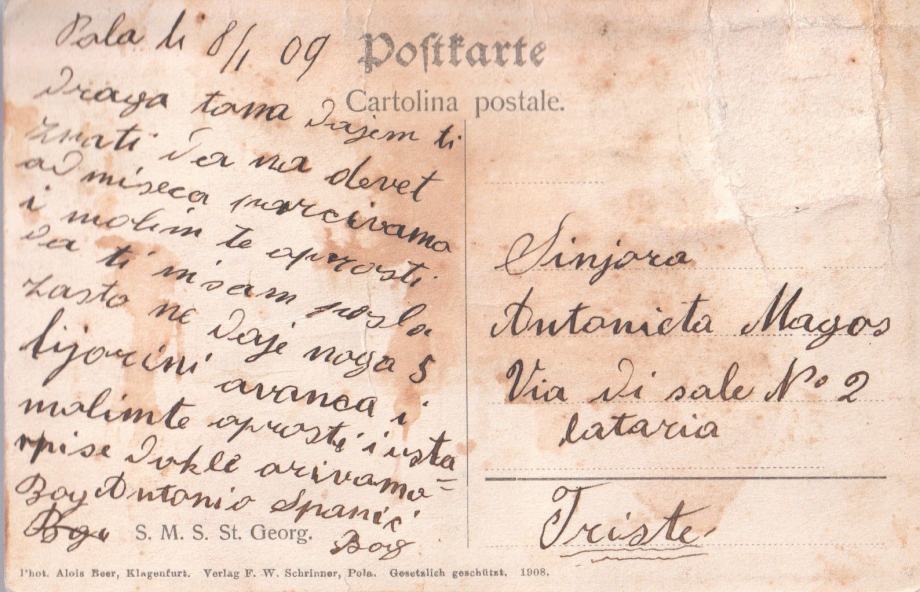 Pola li 8/1 09
Postkarte
Cartolina postale.
Draga tona dajem ti
znati da na devet
od miseca parcivamo
i molim te oprosti
da ti nisam posla
zasto ne daje noga 5
fijorini avanca i
molimte oprosti i
pise dokle arivamo=
Bog Antonio Spanić
Bog
S. M. S. St. Georg.
Bog
Sinjora
Antonieta Magos
Via di sale No 2
lataria
Trieste
Phot. Alois Beer, Klagenfurt. Verlag F. W. Schrinner, Pola. Gesetzlich geschützt. 1908.